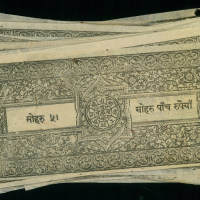 मोहरु ५।
मोहरु पाँच रुपैयाँ